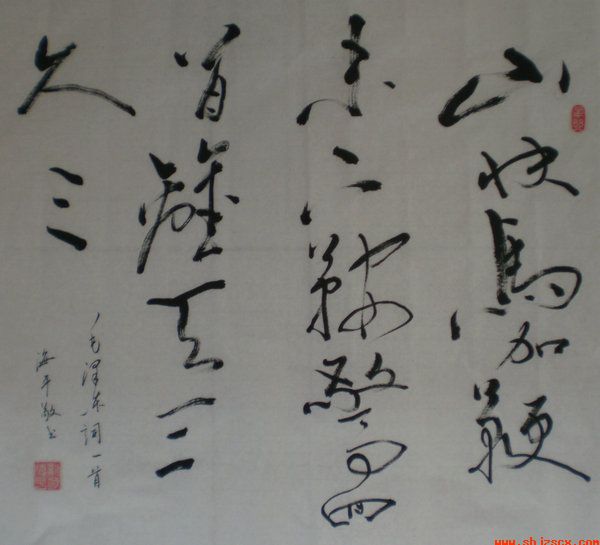 山快馬加鞭
未下鞍驚回
首離天三
尺三
毛泽东词一首
海平敬书
www.sbjzscx.c